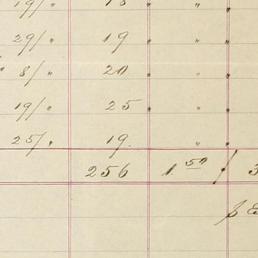 19/ " 18 " "
29/ " 19 " "
8/ " 20 " "
19/ " 25 " "
25/ " 19. " "
256 1 50 / 3